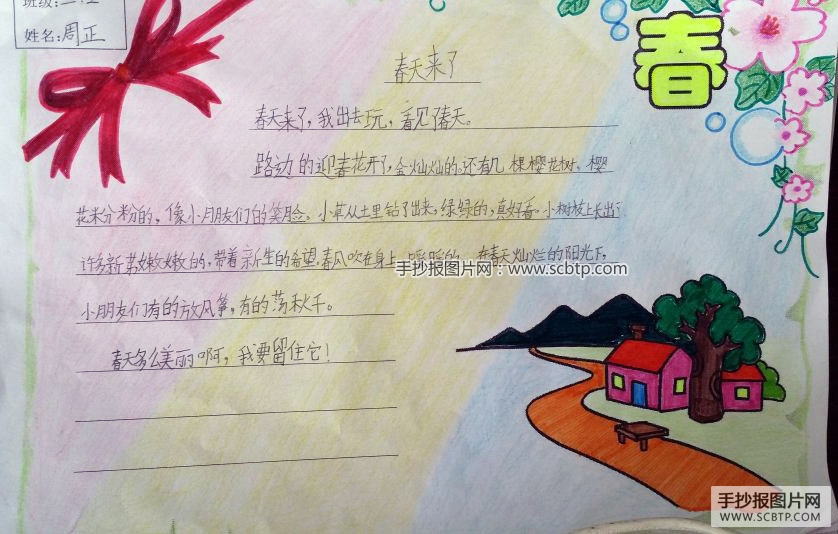 班级:
姓名:周正
春
春天来了
春天来了,我出去玩,看见了春天。
路边的迎春花开了,金灿灿的。还有几棵樱花树、樱
花粉粉的,像小朋友们的笑脸。小草从土里钻了出来,绿绿的,真好看。小树枝上长出了
许多新芽嫩嫩的,带着新生的希望.春风吹在身上,暖暖的。在春天灿烂的阳光下,
小朋友们有的放风筝,有的荡秋千。
春天多么美丽啊,我要留住它!
手抄报图片网:www.scbtp.com
手抄报图片网
WWW.SCBTP.COM